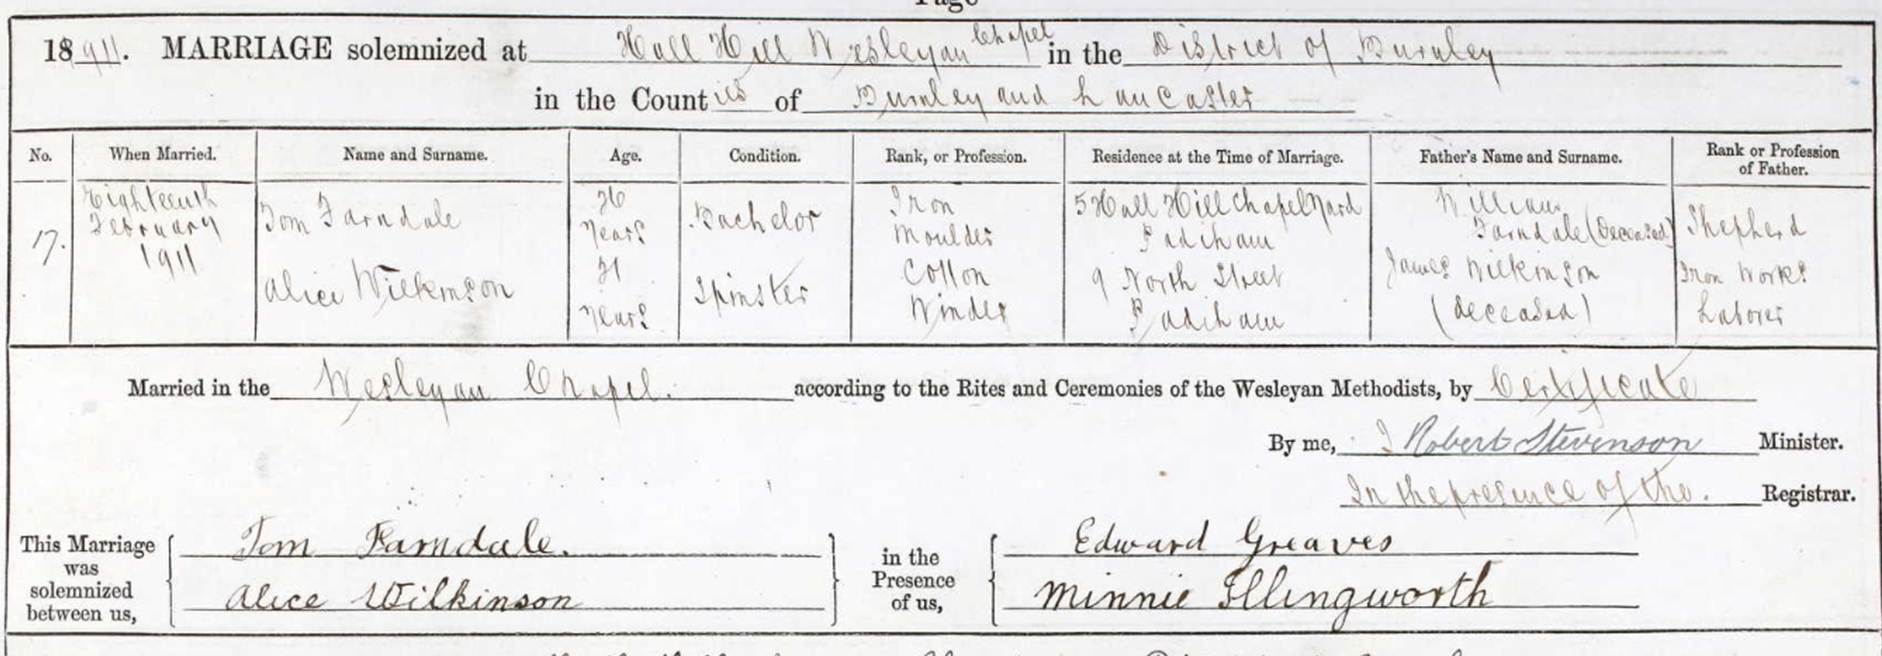 Page
1911. MARRIAGE solemnized at Hall Hill Wesleyan Chapel in the District of Burnley
in the Counties of Burnley and Lancaster
No. When Married. Name and Surname. Age. Condition. Rank, or Profession. Residence at the Time of Marriage. Father's Name and Surname. Rank or Profession of Father.
17. Eighteenth February 1911
Tom Farndale Years Bachelor Iron Moulder 5 Hall Hill Chapel Yard Padiham William Farndale (Deceased) Shepherd
Alice Wilkinson Years Spinster Cotton Winder 9 North Street Padiham James Wilkinson (deceased) Iron Works Laborer
Married in the Wesleyan Chapel. according to the Rites and Ceremonies of the Wesleyan Methodists, by Certificate
By me, J Robert Stevenson Minister.
In the presence of the. Registrar.
This Marriage was solemnized between us, Tom Farndale. Alice Wilkinson
in the Presence of us, Edward Greaves Minnie Illingworth